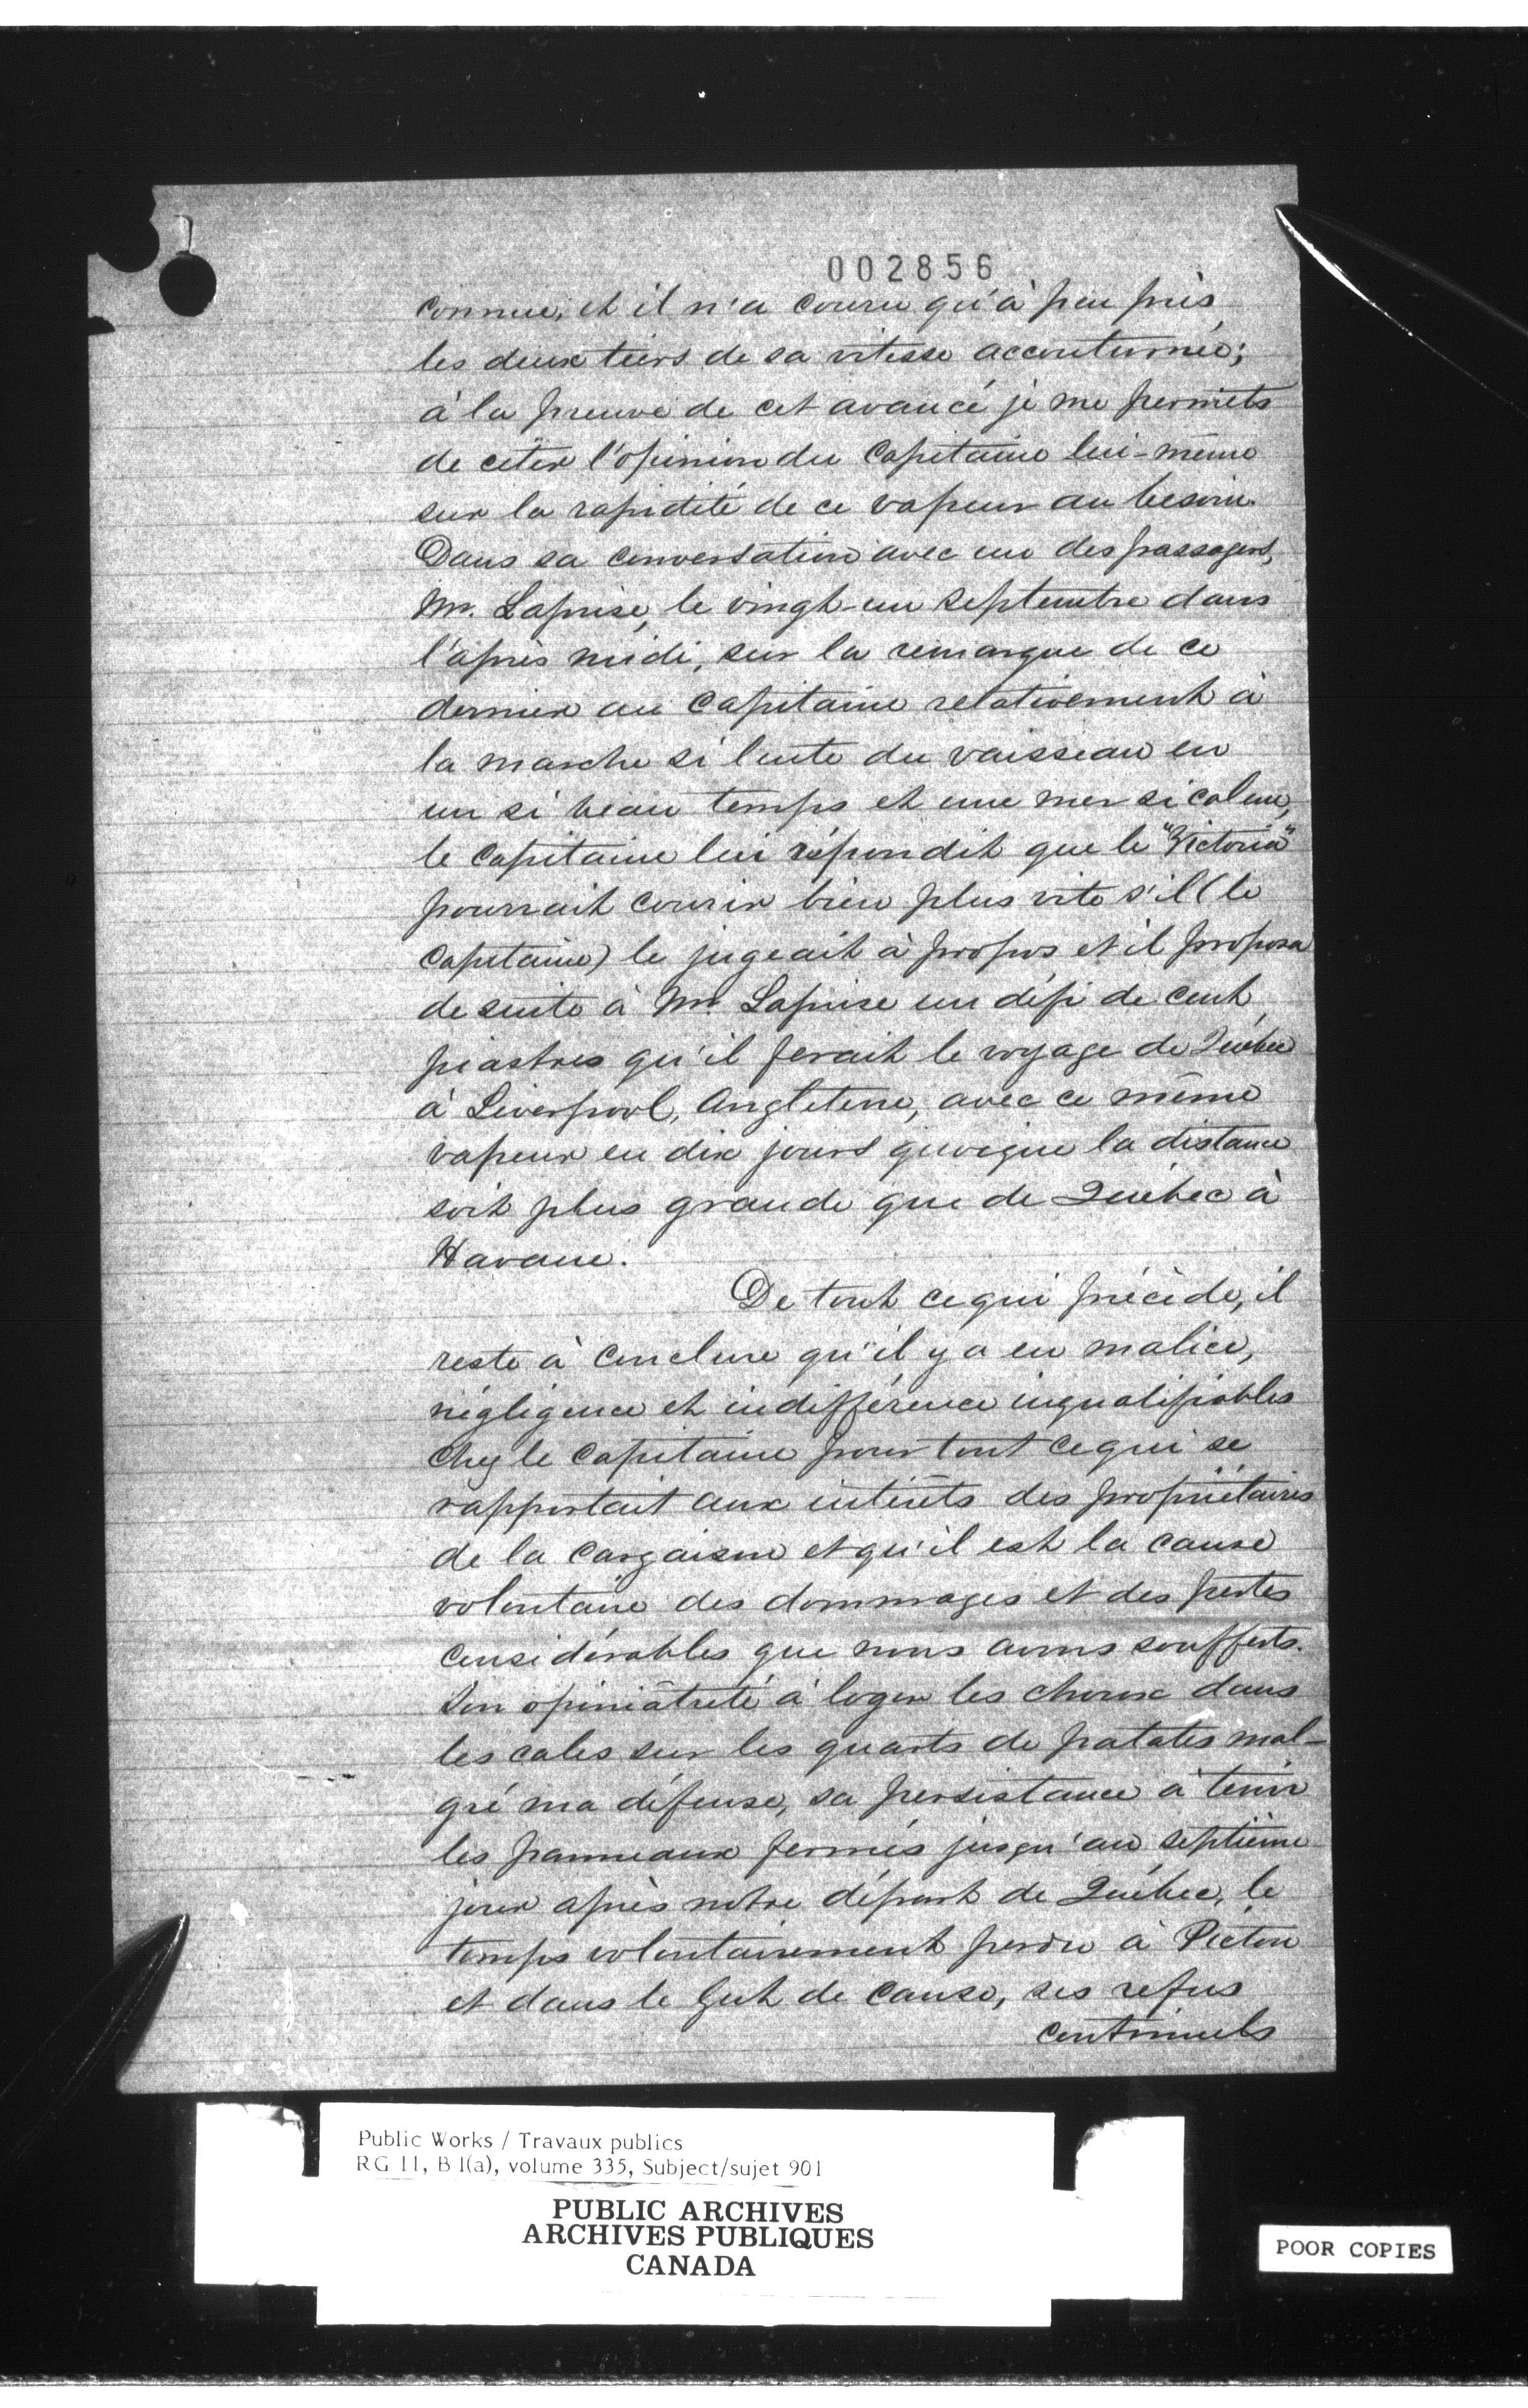 002856
connue, et il n'a couru qu'à peu près
les deux tiers de sa vitesse accoutumée;
à la preuve de cet avancé je me permets
de citer l'opinion du Capitaine lui-même
sur la rapidité de ce vapeur au besoin.
Dans sa conversation avec un des passagers,
Mr. Laprise, le vingt-un Septembre dans
l'après midi, sur la remarque de ce
dernier au Capitaine relativement à
la marche si lente du vaisseau en
un si beau temps et une mer si calme,
le Capitaine lui répondit que le "Victoria"
pourrait courir bien plus vite s'il (le
Capitaine) le jugeait à propos et il proposa
de suite à Mr. Laprise un défi de cent
piastres qu'il ferait le voyage de Québec
à Liverpool, Angleterre, avec ce même
vapeur en dix jours quoique la distance
soit plus grande que de Québec à
Havane.
De tout ce qui précède, il
reste à conclure qu'il y a eu malice,
négligence et indifférence inqualifiables
chez le Capitaine pour tout ce qui se
rapportait aux intérêts des propriétaires
de la cargaison et qu'il est la cause
volontaire des dommages et des pertes
considérables que nous avons soufferts.
Son opiniâtreté à loger les choux dans
les cales sur les quarts de patates mal-
gré ma défense, sa persistance à tenir
les panneaux fermés jusqu'au septième
jour après notre départ de Québec, le
temps volontairement perdu à Pictou
et dans le Gut de Canso, ses refus
continuels
Public Works / Travaux publics
RG 11, B 1(a), volume 335, Subject/sujet 901
PUBLIC ARCHIVES
ARCHIVES PUBLIQUES
CANADA
POOR COPIES